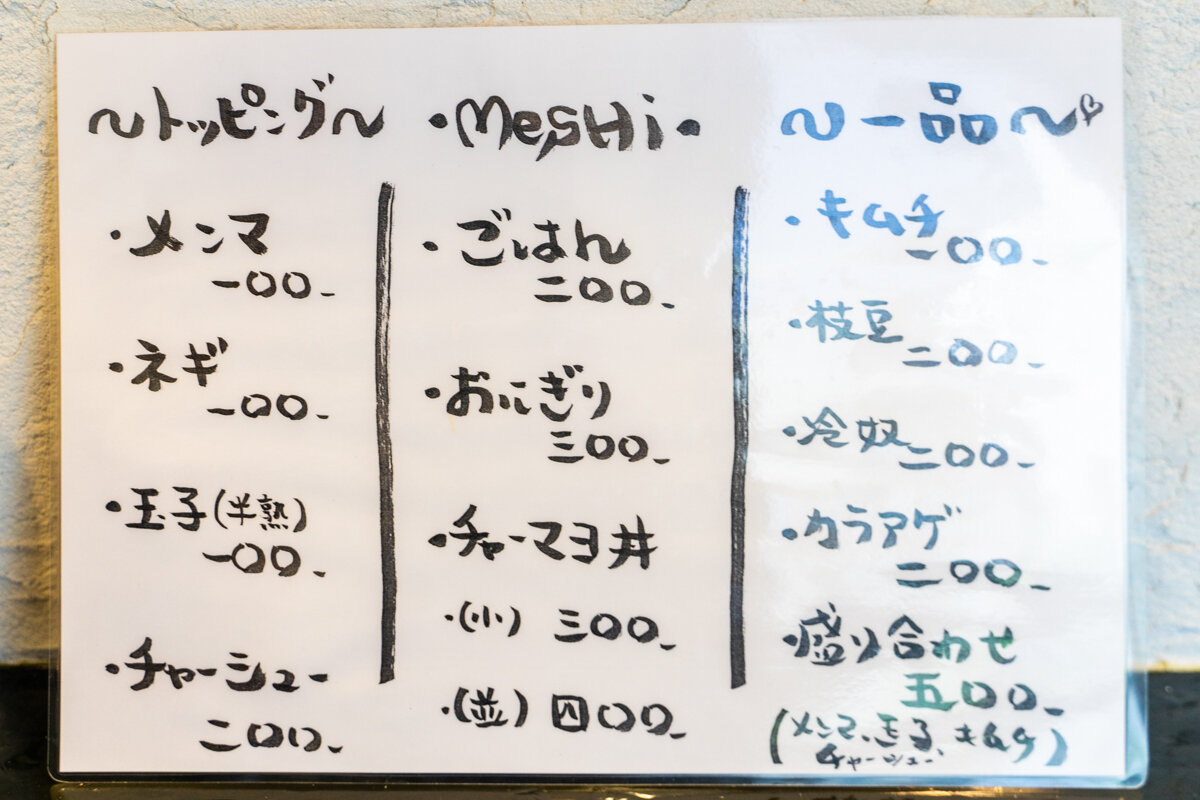 〜トッピング〜
・メンマ
一〇〇-
・ネギ
一〇〇-
・玉子(半熟)
一〇〇-
・チャーシュー
二〇〇-
・MeSHi・
・ごはん
二〇〇-
・おにぎり
三〇〇-
・チャーマヨ丼
・(小) 三〇〇-
・(並) 四〇〇-
〜一品〜♡
・キムチ
一〇〇-
・枝豆
二〇〇-
・冷奴
二〇〇-
・カラアゲ
二〇〇-
・盛り合わせ
五〇〇-
(メンマ、玉子、キムチ
チャーシュー)